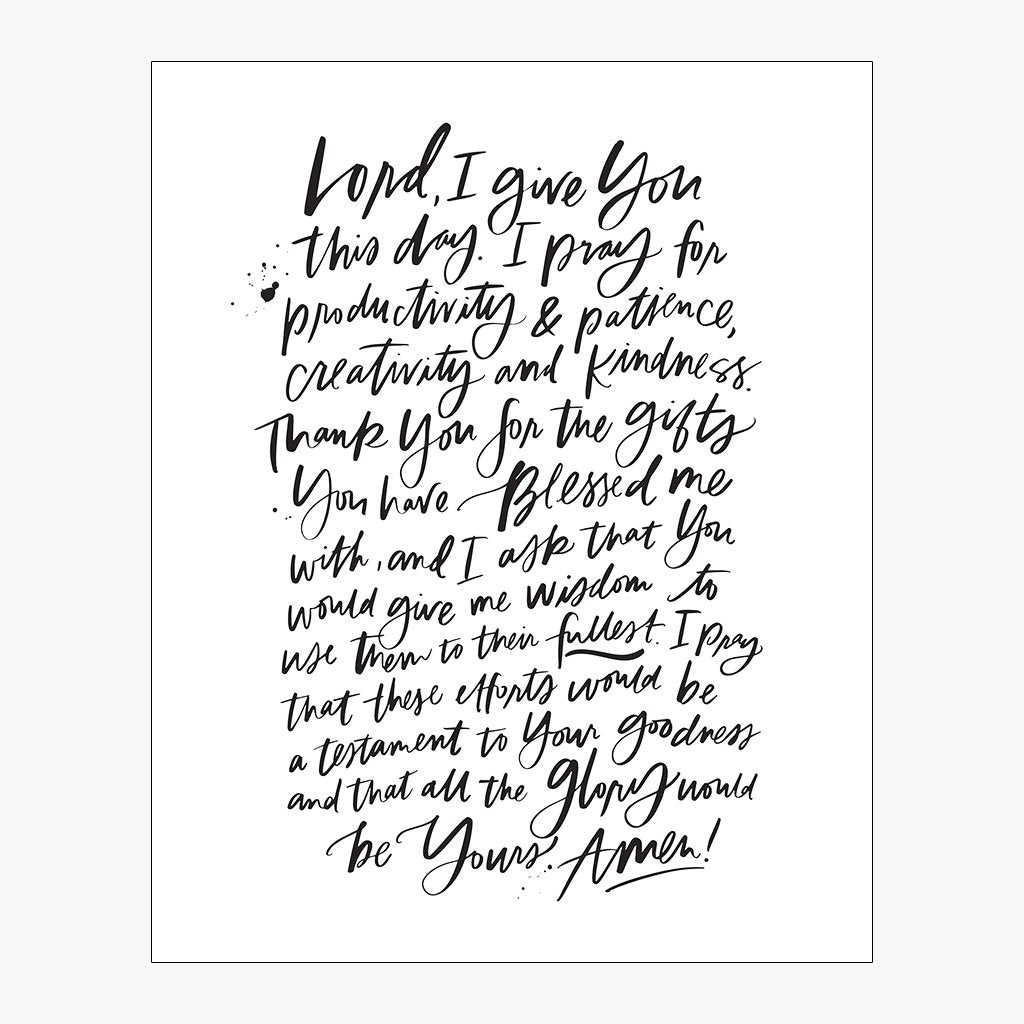 Lord, I give You
this day. I pray for
productivity & patience,
creativity and kindness.
Thank You for the gifts
You have Blessed me
with, and I ask that You
would give me wisdom to
use them to their fullest. I pray
that these efforts would be
a testament to Your goodness
and that all the glory would
be Yours. Amen!